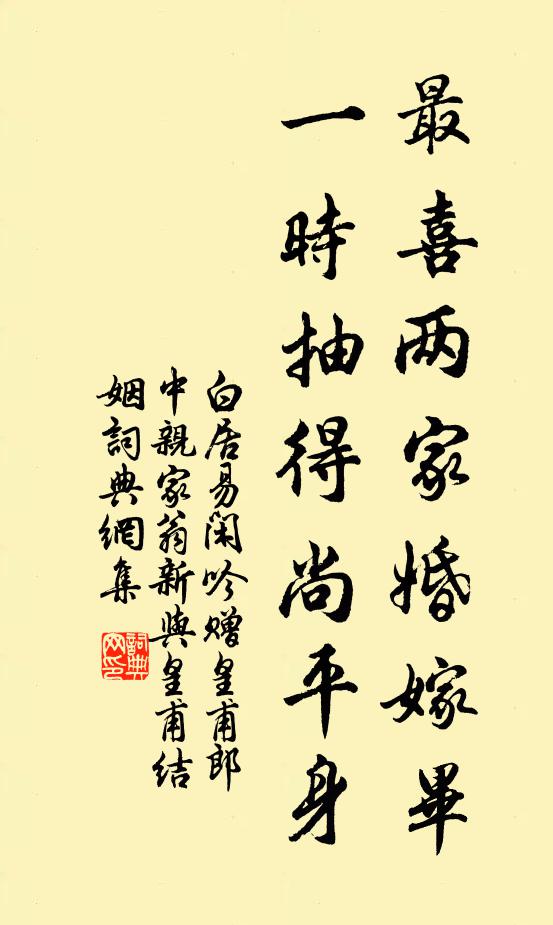 最喜两家婚嫁畢
一時抽得尚平身
白居易閑吟贈皇甫郎
中親家翁新與皇甫結
姻詞典網集
詞典
网印